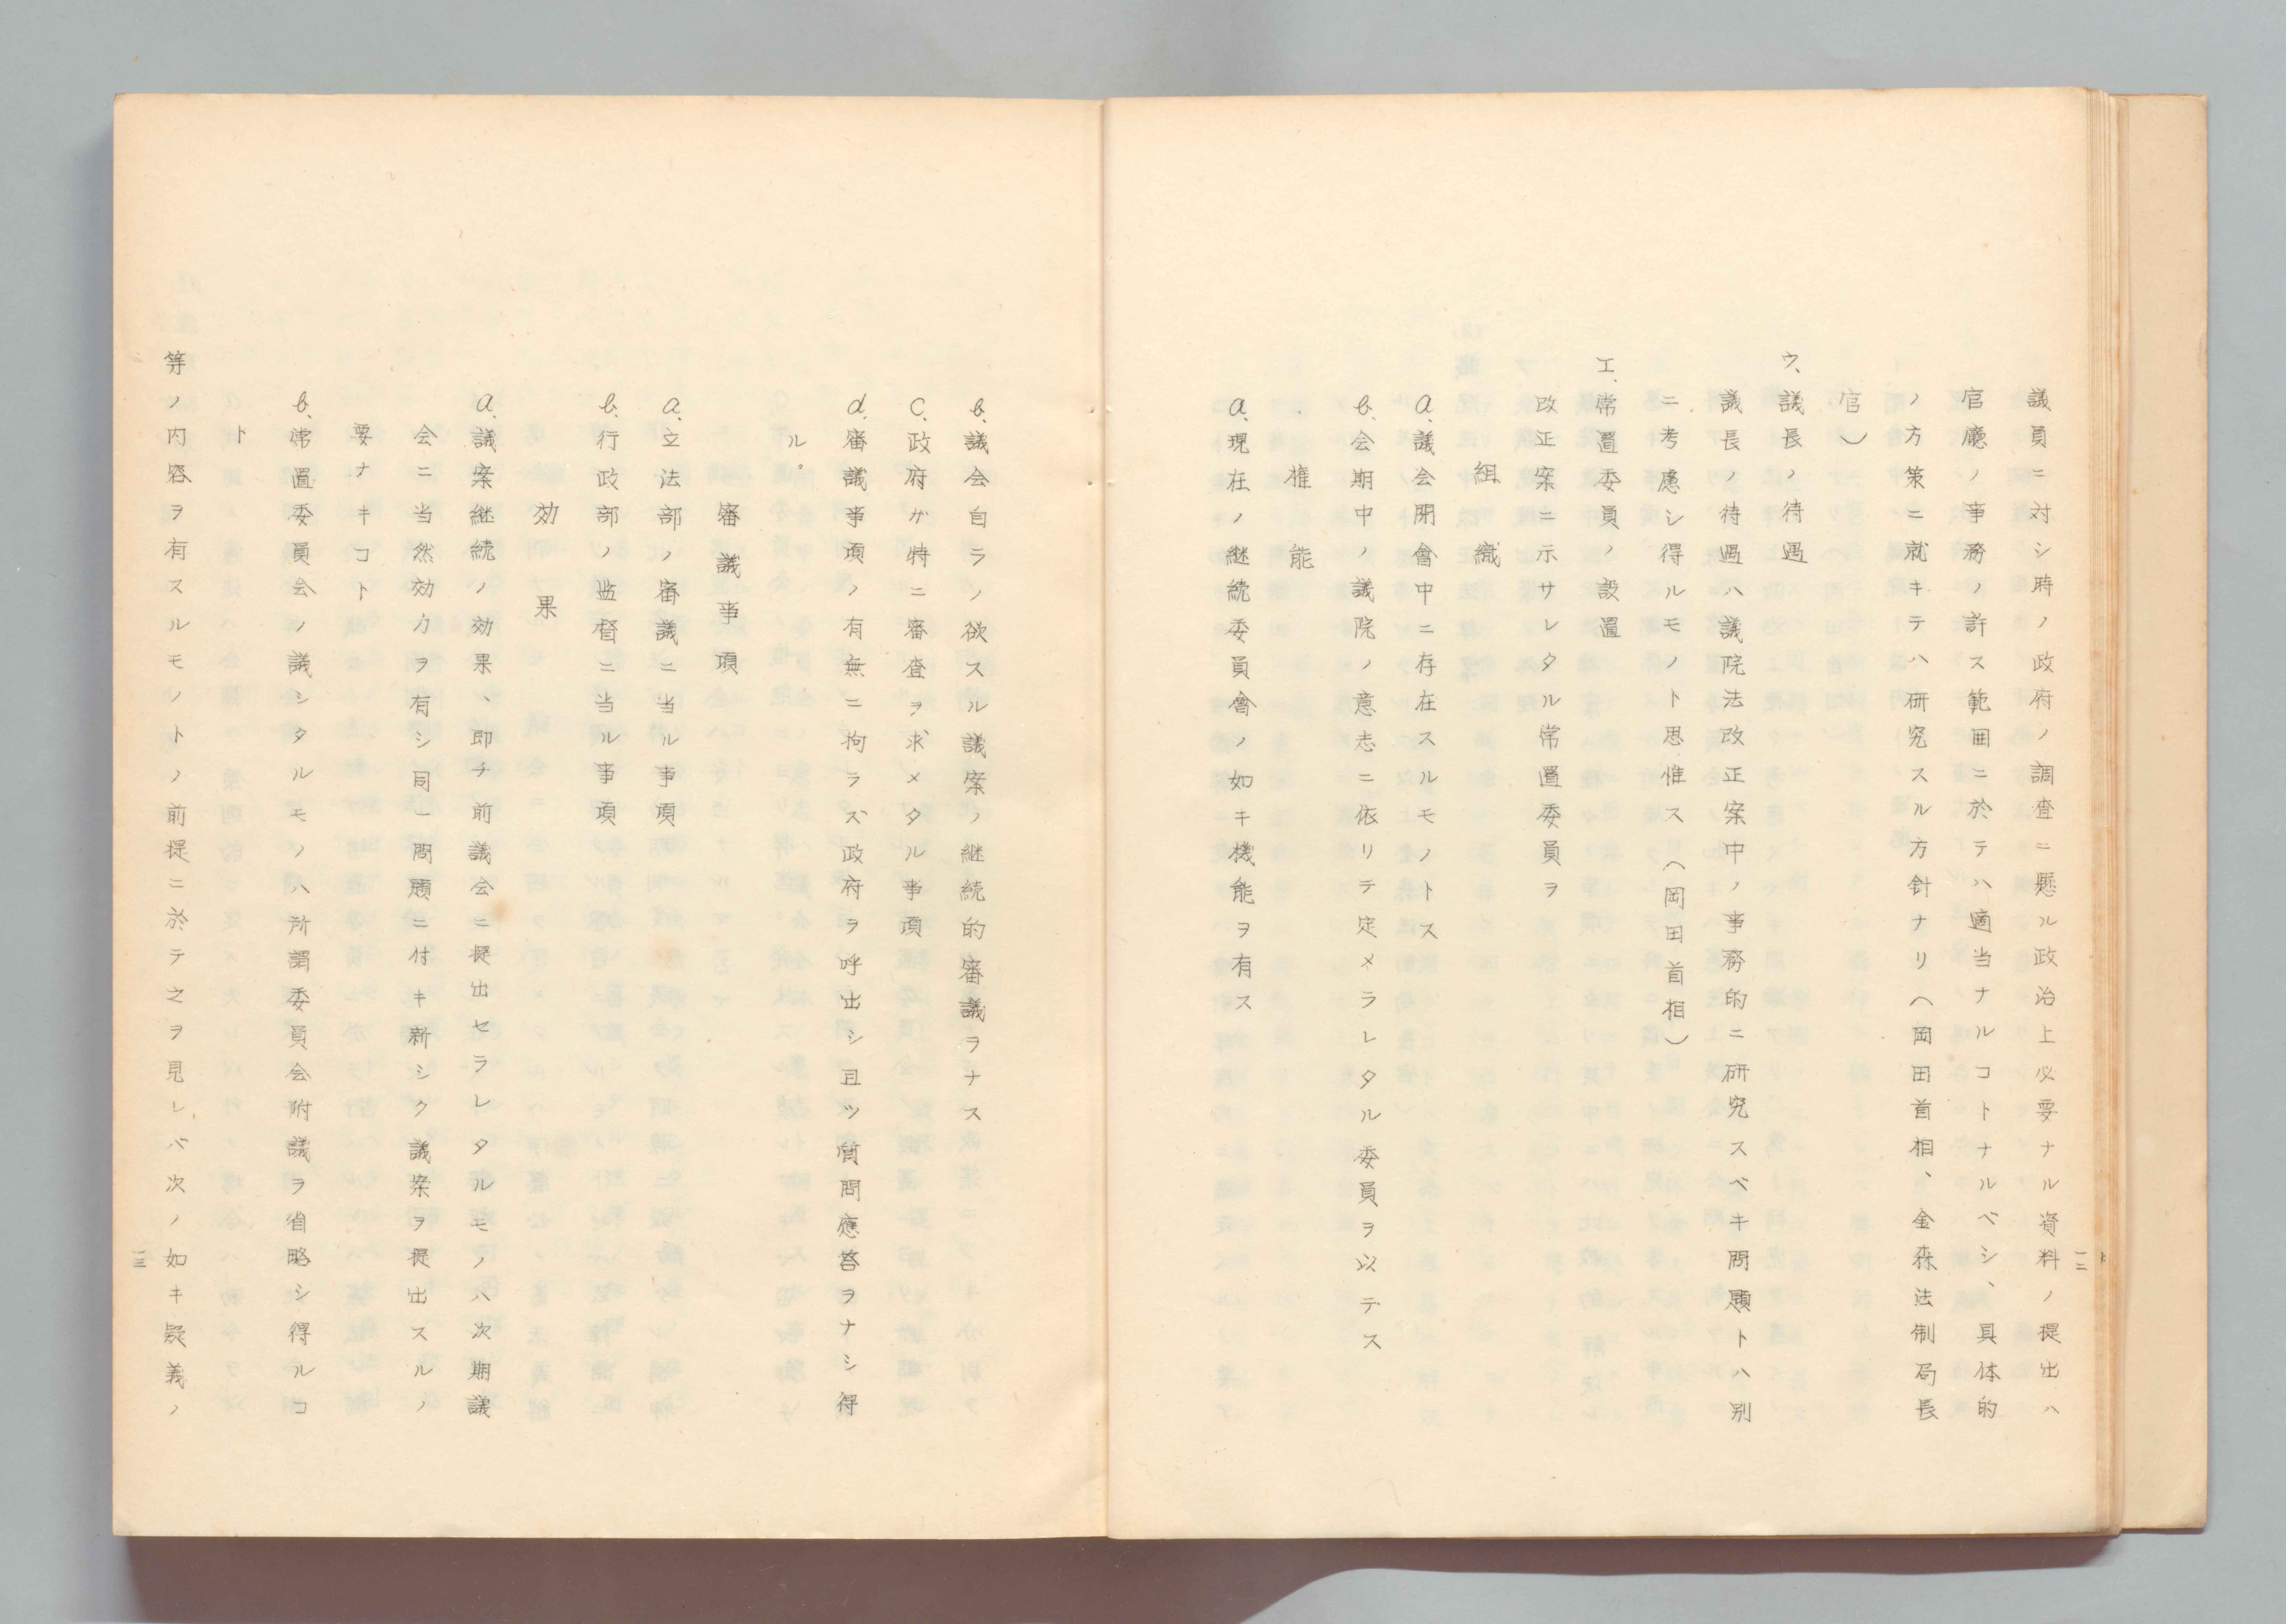 議員ニ対シ時ノ政府ノ調査ニ懸ル政治上必要ナル資料ノ提出ハ
官廳ノ事務ノ許ス範囲ニ於テハ適当ナルコトナルベシ、具体的
ノ方策ニ就キテハ研究スル方針ナリ(岡田首相、金森法制局長
官)
ウ、議長ノ待遇
議長ノ待遇ハ議院法改正案中ノ事務的ニ研究スベキ問題トハ別
ニ考慮シ得ルモノト思惟ス(岡田首相)
エ、常置委員ノ設置
改正案ニ示サレタル常置委員ヲ
組織
a、議会閉會中ニ存在スルモノトス
b、会期中ノ議院ノ意志ニ依リテ定メラレタル委員ヲ以テス
権能
a、現在ノ継続委員會ノ如キ機能ヲ有ス
一二
b、議会自ラノ欲スル議案ノ継続的審議ヲナス
c、政府カ特ニ審査ヲ求メタル事項
d、審議事項ノ有無ニ拘ラズ政府ヲ呼出シ且ツ質問應答ヲナシ得
ル。
審議事項
a、立法部ノ審議ニ当ル事項
b、行政部ノ監督ニ当ル事項
効果
a、議案継続ノ効果、即チ前議会ニ提出セラレタルモノハ次期議
会ニ当然効力ヲ有シ同一問題ニ付キ新シク議案ヲ提出スルノ
要ナキコト
b、常置委員会ノ議シタルモノハ所謂委員会附議ヲ省略シ得ルコ
ト
等ノ内容ヲ有スルモノトノ前提ニ於テ之ヲ見レバ次ノ如キ疑義ノ
一三